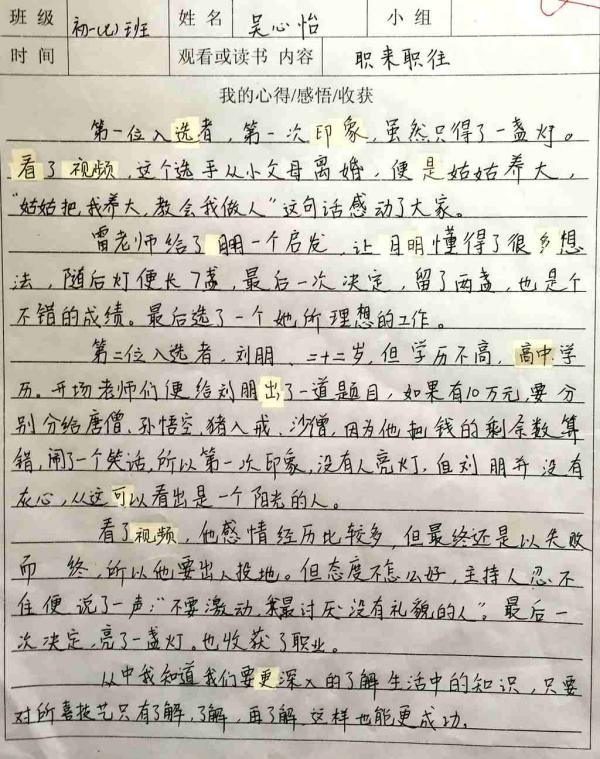 班级 初一(1)班 姓名 吴心怡 小组
时间 观看或读书内容 职来职往
我的心得/感悟/收获
第一位入选者，第一次印象，虽然只得了一盏灯。
看了视频，这个选手从小父母离婚，便是姑姑养大，
“姑姑把我养大，教会我做人”这句话感动了大家。
雷老师给了一个启发，让月明懂得了很多想
法，随后灯便长7盏，最后一次决定，留了两盏，也是个
不错的成绩。最后选了一个她所理想的工作。
第二位入选者，刘朋、二十二岁，但学历不高，高中学
历。开场老师们便给刘朋出了一道题目，如果有10万元，要分
别分给唐僧、孙悟空，猪八戒，沙僧，因为他把钱的剩余数算
错，闹了一个笑话，所以第一次印象，没有人亮灯，但刘朋并没有
灰心，从这可以看出是一个阳光的人。
看了视频，他感情经历比较多，但最终还是以失败
而终，所以他要出人投地。但态度不怎么好，主持人忍不
住便说了一声：“不要激动，我最讨厌没有礼貌的人”。最后一
次决定，亮了一盏灯。也收获了职业。
从中我知道我们要更深入的了解生活中的知识，只要
对所喜技艺只有了解，了解，再了解 这样也能更成功。